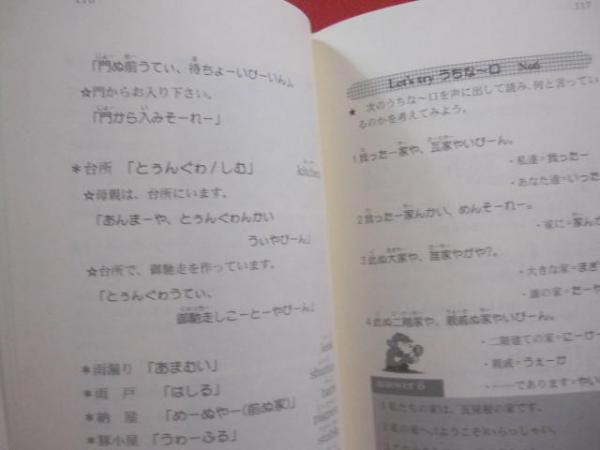 116
「門ぬ前うてぃ、待ちょーいびーいん」
☆門からお入り下さい。
「門から入みそーれー」
＊台所 「とぅんぐゎ/しむ」
☆母親は、台所にいます。
「あんまーや、とぅんぐゎんかい
うぃやびーん」
☆台所で、御馳走を作っています。
「とぅんぐゎうてぃ、
御馳走しこーとーやびーん」
＊雨漏り 「あまむい」
＊雨 戸 「はしる」
＊納 屋 「めーぬやー(前ぬ家)」
＊豚小屋 「うゎーふる」
117
Let's try うちな〜口 No6
★ 次のうちな〜口を声に出して読み、何と言ってい
るのかを考えてみよう。
1 我ったー家や、瓦家やいびーん。
・私達=我ったー
・あなた達=いった
2 我ったー家んかい、めんそーれー。
・家に=家ん
3 此ぬ大家や、誰家やがや?。
・大きな家=まぎ
・誰の家=たーや
4 此ぬ二階家や、親戚ぬ家やいびーん。
・二階建ての家=にー
・親戚=うぇーか
・――であります=やい
answer 6
1 私たちの家は、瓦屋根の家です。
2 私の家へようこそいらっしゃい。